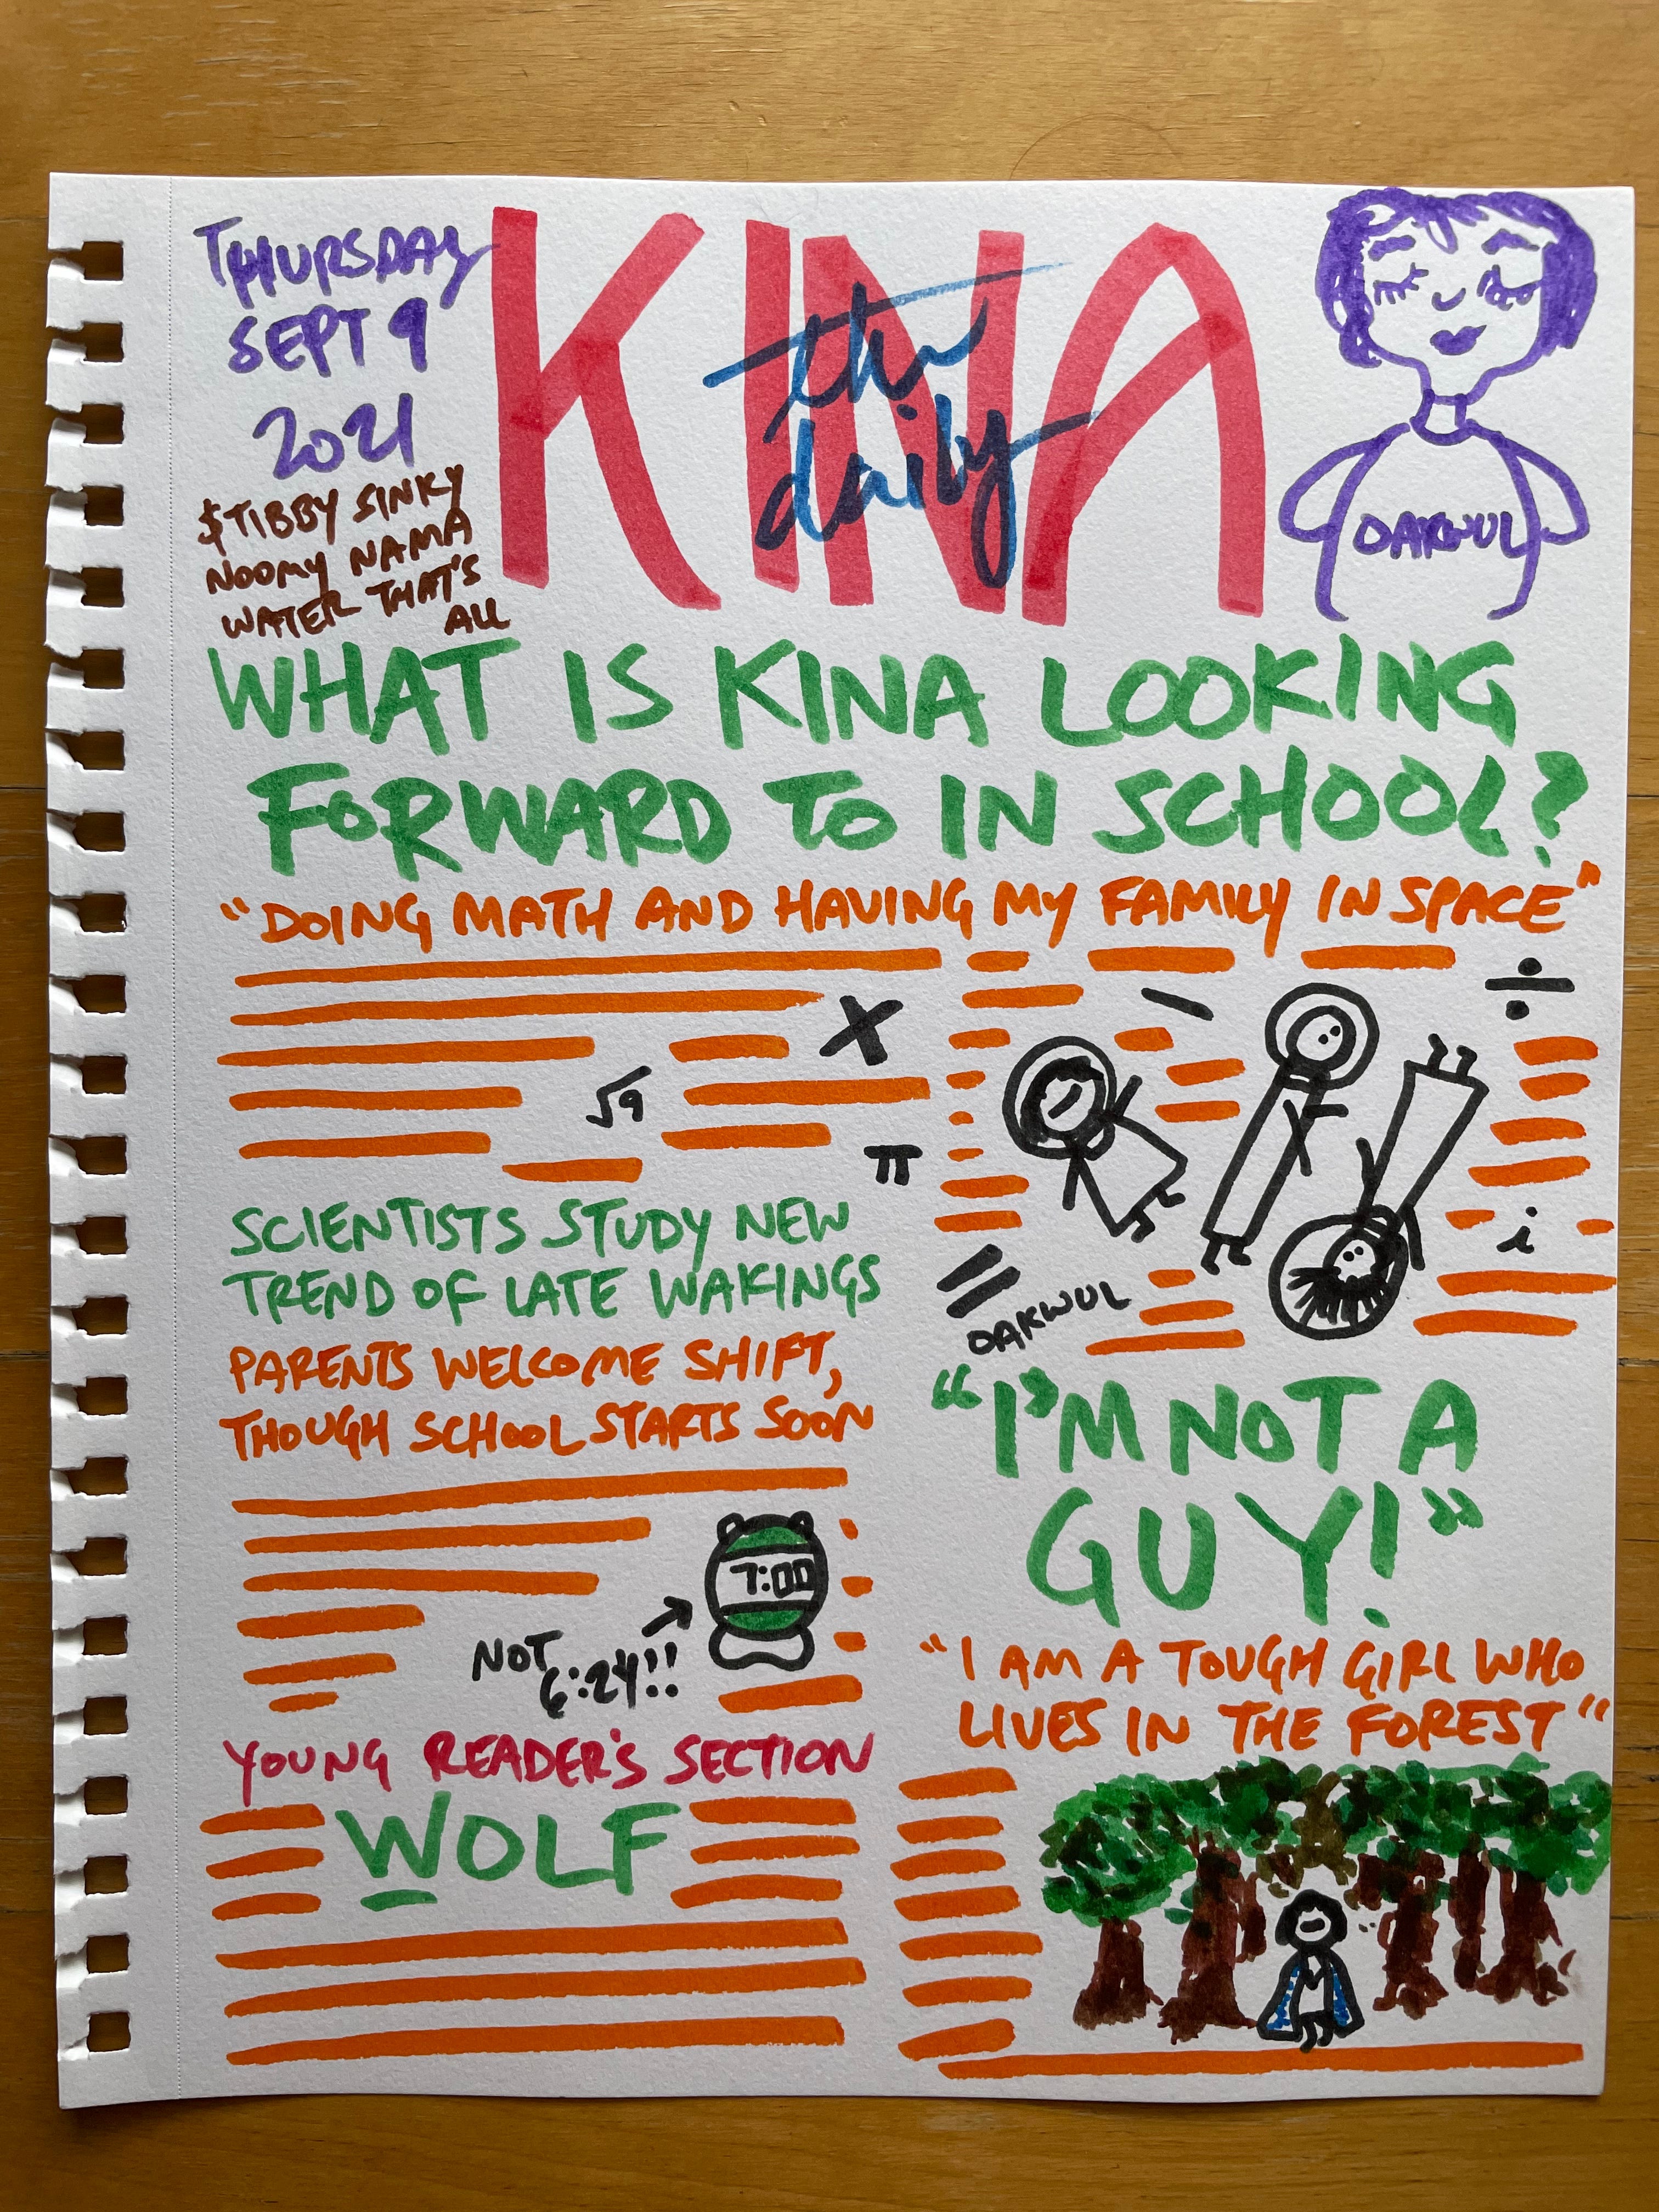 THURSDAY
SEPT 9
2021
$TIBBY SINKY
NOOMY NAMA
WATER THAT'S
ALL
KINA
the
daily
OAKWUL
WHAT IS KINA LOOKING
FORWARD TO IN SCHOOL?
"DOING MATH AND HAVING MY FAMILY IN SPACE"
X
√9
π
−
÷
=
i
OAKWUL
SCIENTISTS STUDY NEW
TREND OF LATE WAKINGS
PARENTS WELCOME SHIFT,
THOUGH SCHOOL STARTS SOON
7:00
NOT
6:24!!
"I'M NOT A
GUY!"
"I AM A TOUGH GIRL WHO
LIVES IN THE FOREST"
YOUNG READER'S SECTION
WOLF